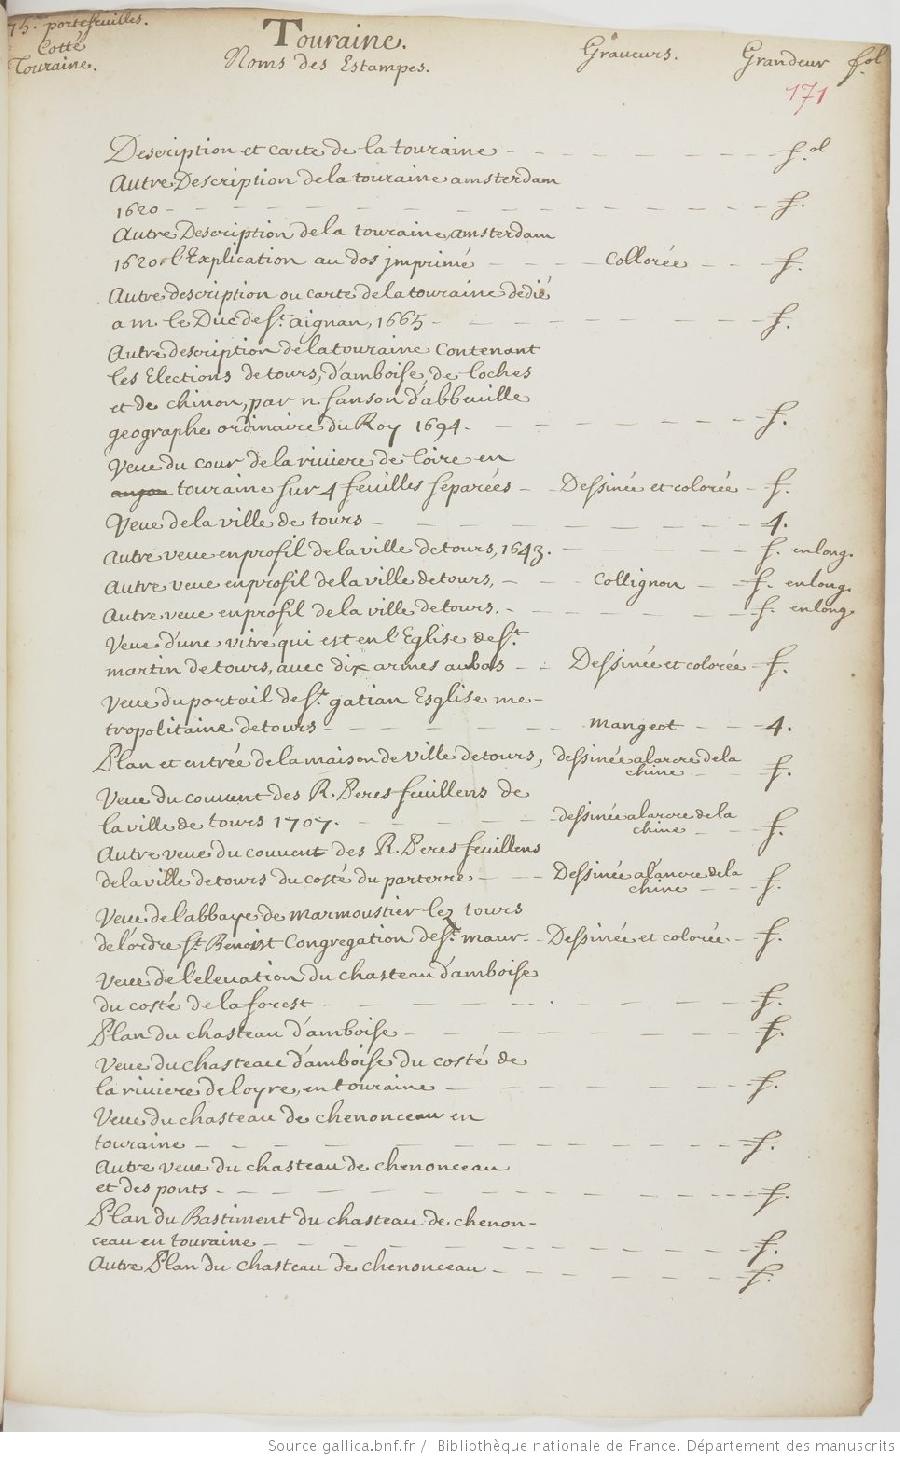 75.e portefeuilles.
Cotté
Touraine.
Touraine.
Noms des Estampes.
Graveurs.
Grandeur fol
171
Description et carte de la touraine - - - - - - f.ol
Autre Description de la touraine amsterdam
1620 - - - - - - f.
Autre Description de la touraine, amsterdam
1620 l'Explication au dos jmprimé - - - Collorée - - - f.
Autre description ou carte de la touraine dedié
a m. le Duc de St. aignan, 1665 - - - - - - f.
Autre description de la touraine contenant
les Elections de tours, d'amboise, de loches
et de chinon, par n sanson d'abbeuille
geographe ordinaire du Roy 1694. - - - - - - f.
Veue du cour de la riviere de loire en
anjou touraine sur 4 feuilles separées - - Dessinée et colorée - f.
Veue de la ville de tours - - - - - - 4.
Autre veue en profil de la ville de tours, 1643. - - - - f. en long.
Autre veue en profil de la ville de tours, - - - Collignon - - f. en long.
Autre veue en profil de la ville de tours. - - - - - - f. en long
Veue d'une vitre qui est en l'Eglise de St.
martin de tours, avec dix armes au bas - - Dessinée et colorée - f.
Veue du portail de St. gatian Esglise me-
tropolitaine de tours - - - - - - mangeot - - 4.
Plan et entrée de la maison de ville de tours, dessinée a lancre de la
chine - - f.
Veue du couuent des R. Peres feuillens de
la ville de tours 1707. - - - - - dessinée a lancre de la
chine - - f.
Autre veue du couuent des R. Peres feuillens
de la ville de tours du costé du parterre, - - - Dessinée a l'ancre de la
chine - - - f.
Veue de l'abbaye de marmoustier lez tours
de l'ordre St. Benoist Congregation de St. maur. - Dessinée et colorée. - f.
Veue de l'eleuation du chasteau d'amboise
du costé de la forest - - - - - - f.
Plan du chasteau d'amboise - - - - - - f.
Veue du chasteau d'amboise du costé de
la riviere de loyre, en touraine - - - - - - f.
Veue du chasteau de chenonceau en
touraine - - - - - - f.
Autre veue du chasteau de chenonceau
et des ponts - - - - - - f.
Plan du Bastiment du chasteau de chenon-
ceau en touraine - - - - - - f.
Autre Plan du chasteau de chenonceau - - - - - - f.
Source gallica.bnf.fr / Bibliothèque nationale de France. Département des manuscrits